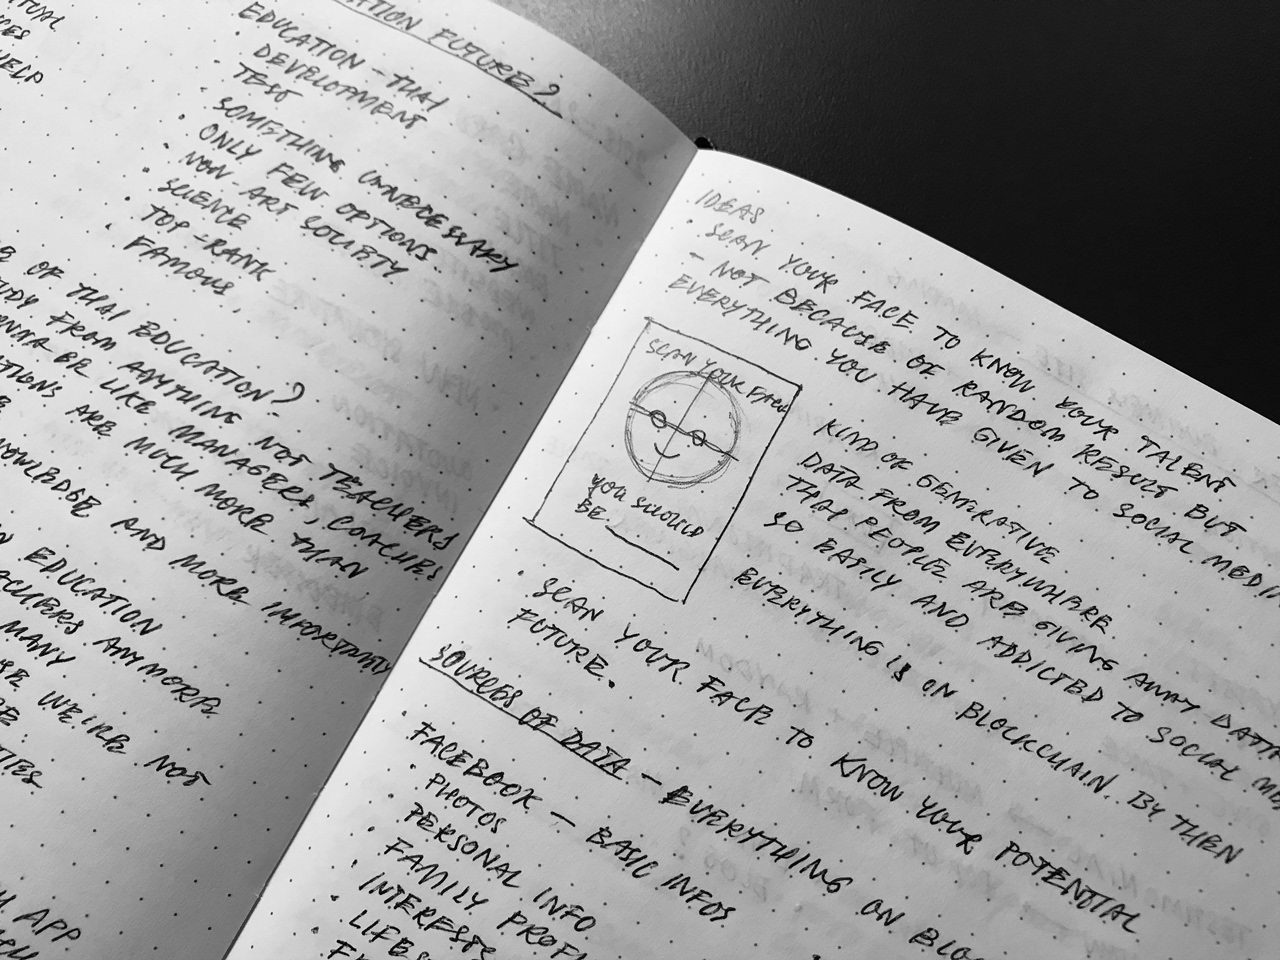 TUAL
CES
HELP
ATION FUTURE?
EDUCATION - THAI
DEVELOPMENT
TEST
SOMETHING UNNECESSARY
ONLY FEW OPTIONS.
NON-ART SOCIETY
SCIENCE
TOP-RANK
FAMOUS.
OF THAI EDUCATION?
FROM ANYTHING NOT TEACHERS
BE LIKE MANAGERS, COACHES
ARE MUCH MORE THAN
KNOWLEDGE AND MORE IMPORTANTLY
EDUCATION
ANYMORE
MANY
WE'RE NOT
APP
IDEAS
• SCAN YOUR FACE TO KNOW YOUR TALENT
- NOT BECAUSE OF RANDOM RESULT BUT
EVERYTHING YOU HAVE GIVEN TO SOCIAL MEDIA
SCAN YOUR FACE
YOU SHOULD
BE
KIND OF GENERATIVE
DATA FROM EVERYWHERE
THAT PEOPLE ARE GIVING AWAY DATA
SO EASILY AND ADDICTED TO SOCIAL ME
EVERYTHING IS ON BLOCKCHAIN. BY THEN
• SCAN YOUR FACE TO KNOW YOUR POTENTIAL
FUTURE.
SOURCES OF DATA - EVERYTHING ON BLO
FACEBOOK - BASIC INFOS
• PHOTOS
• PERSONAL INFO
• FAMILY PROFI
• INTERESTS
• LIFES